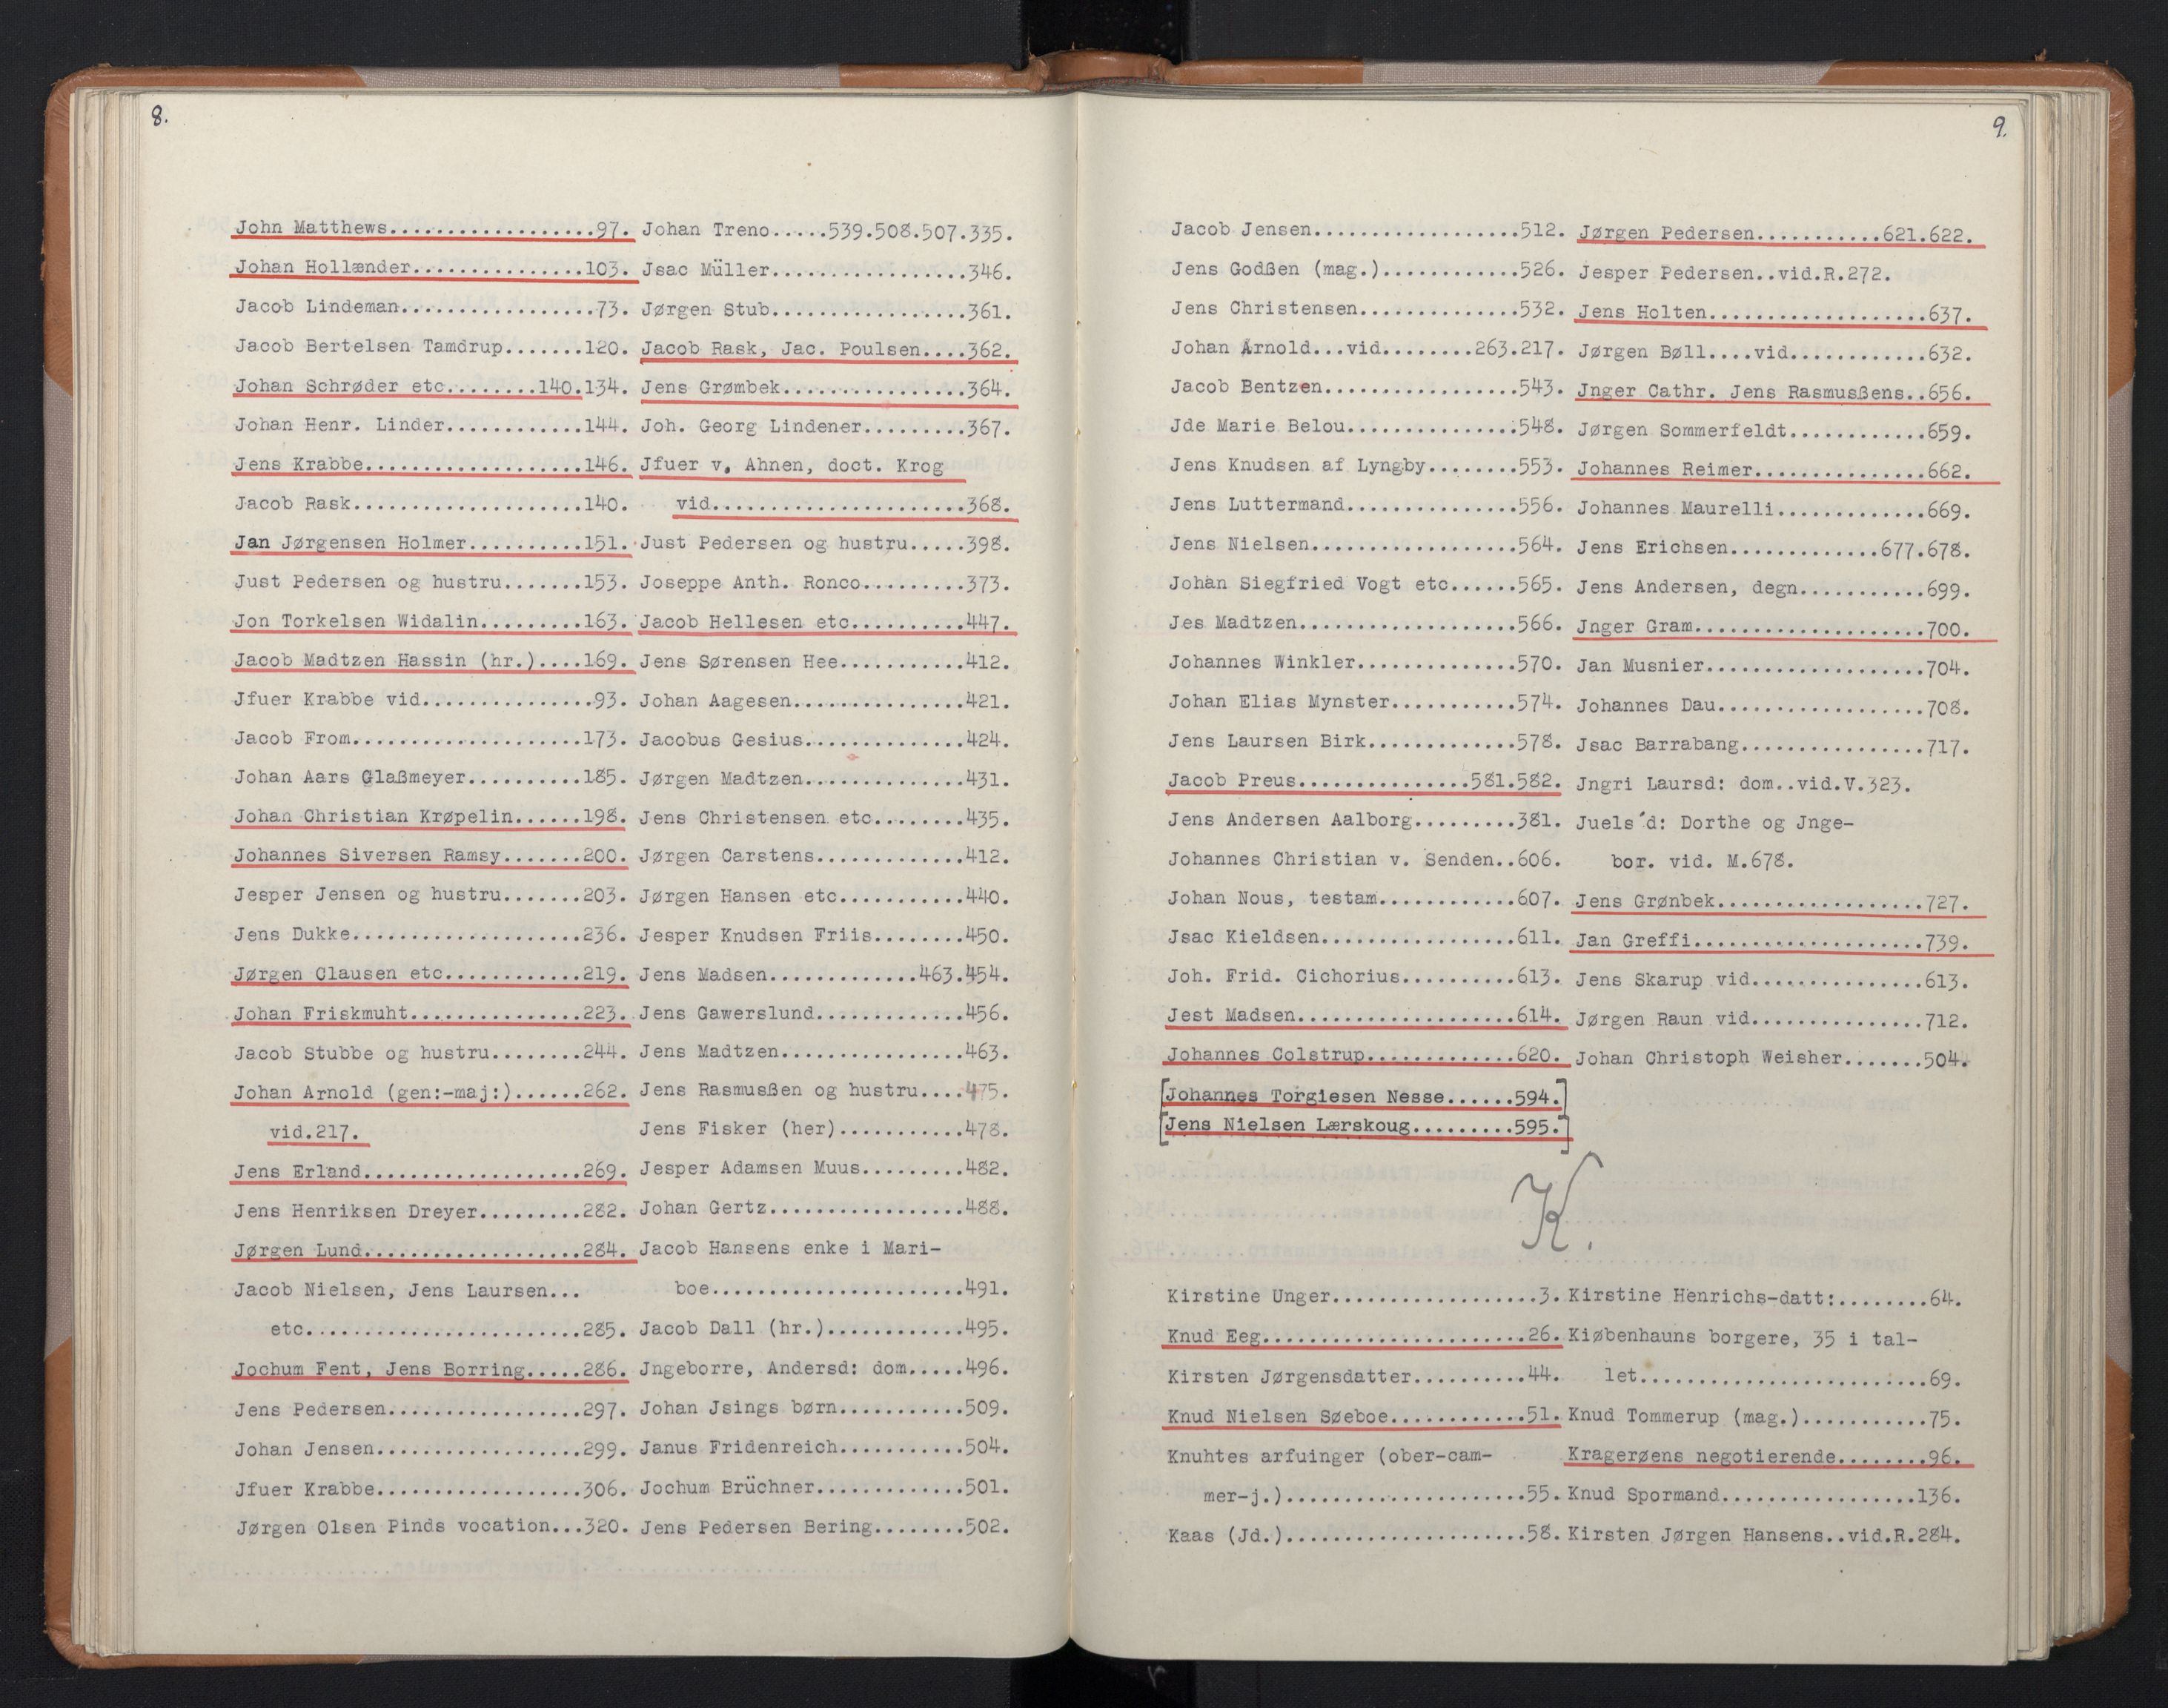 8.
John Matthews..................97.
Johan Hollænder...............103.
Jacob Lindeman.................73.
Jacob Bertelsen Tamdrup.......120.
Johan Schrøder etc........140.134.
Johan Henr. Linder............144.
Jens Krabbe...................146.
Jacob Rask....................140.
Jan Jørgensen Holmer..........151.
Just Pedersen og hustru.......153.
Jon Torkelsen Widalin.........163.
Jacob Madtzen Hassin (hr.)....169.
Jfuer Krabbe vid...............93.
Jacob From....................173.
Johan Aars Glaßmeyer..........185.
Johan Christian Krøpelin......198.
Johannes Siversen Ramsy.......200.
Jesper Jensen og hustru.......203.
Jens Dukke....................236.
Jørgen Clausen etc............219.
Johan Friskmuht...............223.
Jacob Stubbe og hustru........244.
Johan Arnold (gen:-maj:)......262.
vid.217.
Jens Erland...................269.
Jens Henriksen Dreyer.........282.
Jørgen Lund...................284.
Jacob Nielsen, Jens Laursen...
etc........................285.
Jochum Fent, Jens Borring.....286.
Jens Pedersen.................297.
Johan Jensen..................299.
Jfuer Krabbe..................306.
Jørgen Olsen Pinds vocation...320.
Johan Treno.....539.508.507.335.
Jsac Müller.................346.
Jørgen Stub.................361.
Jacob Rask, Jac. Poulsen....362.
Jens Grømbek................364.
Joh. Georg Lindener.........367.
Jfuer v. Ahnen, doct. Krog
vid......................368.
Just Pedersen og hustru.....398.
Joseppe Anth. Ronco.........373.
Jacob Hellesen etc..........447.
Jens Sørensen Hee...........412.
Johan Aagesen...............421.
Jacobus Gesius..............424.
Jørgen Madtzen..............431.
Jens Christensen etc........435.
Jørgen Carstens.............412.
Jørgen Hansen etc...........440.
Jesper Knudsen Friis........450.
Jens Madsen.............463.454.
Jens Gawerslund.............456.
Jens Madtzen................463.
Jens Rasmusßen og hustru....475.
Jens Fisker (her)...........478.
Jesper Adamsen Muus.........482.
Johan Gertz.................488.
Jacob Hansens enke i Mari-
boe......................491.
Jacob Dall (hr.)............495.
Jngeborre, Andersd: dom.....496.
Johan Jsings børn...........509.
Janus Fridenreich...........504.
Jochum Brüchner.............501.
Jens Pedersen Bering........502.
9.
Jacob Jensen..................512.
Jens Godßen (mag.)............526.
Jens Christensen..............532.
Johan Arnold...vid........263.217.
Jacob Bentzen.................543.
Jde Marie Belou...............548.
Jens Knudsen af Lyngby........553.
Jens Luttermand...............556.
Jens Nielsen..................564.
Johan Siegfried Vogt etc......565.
Jes Madtzen...................566.
Johannes Winkler..............570.
Johan Elias Mynster...........574.
Jens Laursen Birk.............578.
Jacob Preus...............581.582.
Jens Andersen Aalborg.........381.
Johannes Christian v. Senden..606.
Johan Nous, testam............607.
Jsac Kieldsen.................611.
Joh. Frid. Cichorius..........613.
Jest Madsen...................614.
Johannes Colstrup.............620.
[Johannes Torgiesen Nesse......594.]
[Jens Nielsen Lærskoug.........595.]
Jørgen Pedersen...........621.622.
Jesper Pedersen..vid.R.272.
Jens Holten...................637.
Jørgen Bøll....vid............632.
Jnger Cathr. Jens Rasmusßens..656.
Jørgen Sommerfeldt............659.
Johannes Reimer...............662.
Johannes Maurelli.............669.
Jens Erichsen.............677.678.
Jens Andersen, degn...........699.
Jnger Gram....................700.
Jan Musnier...................704.
Johannes Dau..................708.
Jsac Barrabang................717.
Jngri Laursd: dom..vid.V.323.
Juels'd: Dorthe og Jnge-
bor. vid. M.678.
Jens Grønbek..................727.
Jan Greffi....................739.
Jens Skarup vid...............613.
Jørgen Raun vid...............712.
Johan Christoph Weisher.......504.
K.
Kirstine Unger..................3.
Knud Eeg.......................26.
Kirsten Jørgensdatter..........44.
Knud Nielsen Søeboe............51.
Knuhtes arfuinger (ober-cam-
mer-j.).....................55.
Kaas (Jd.).....................58.
Kirstine Henrichs-datt:........64.
Kiøbenhauns borgere, 35 i tal-
let.........................69.
Knud Tommerup (mag.)...........75.
Kragerøens negotierende........96.
Knud Spormand.................136.
Kirsten Jørgen Hansens..vid.R.284.